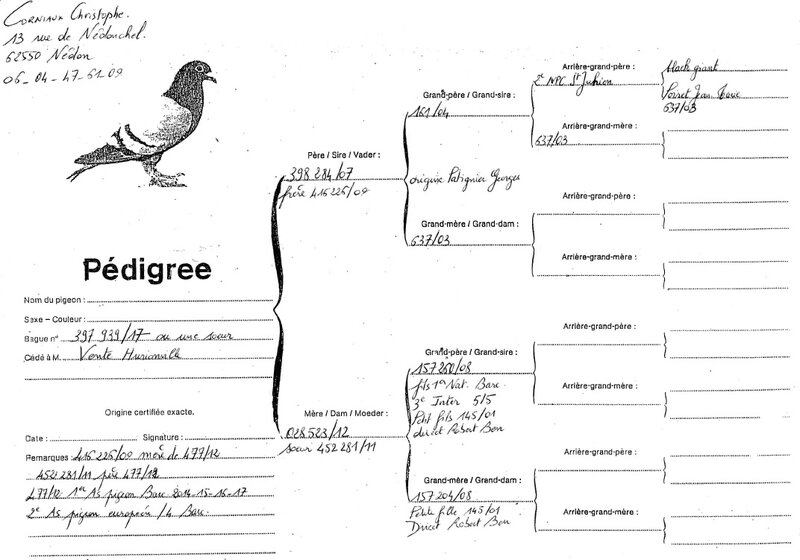 Corniaux Christophe.
13 rue de Nédonchel.
62550 Nédon
06-04-47-61-09
Pédigree
Nom du pigeon :
Sexe – Couleur :
Bague n° 397 939/17 ou une sœur
Cédé à M. Vente Hurionville
Origine certifiée exacte.
Date : Signature :
Remarques 416 226/09 mère de 477/12
452 281/11 père 477/12
477/12 1er As pigeon Barc 2014-15-16-17
2e As pigeon européen /4 Barc.
Père / Sire / Vader :
398 284/07
frère 416 226/09
Mère / Dam / Moeder :
028 523/12
sœur 452 281/11
Grand-père / Grand-sire :
161/04
origine Patignier Georges
Grand-mère / Grand-dam :
637/03
Grand-père / Grand-sire :
157 260/08
fils 1er Nat. Barc.
3e Inter 5/5
Petit fils 145/01
direct Robert Ben
Grand-mère / Grand-dam :
157 204/08
Petite fille 145/01
Direct Robert Ben
Arrière-grand-père :
2e NPC St Juhien
black giant
Jean
637/03
Arrière-grand-mère :
637/03
Arrière-grand-père :
Arrière-grand-mère :
Arrière-grand-père :
Arrière-grand-mère :
Arrière-grand-père :
Arrière-grand-mère :